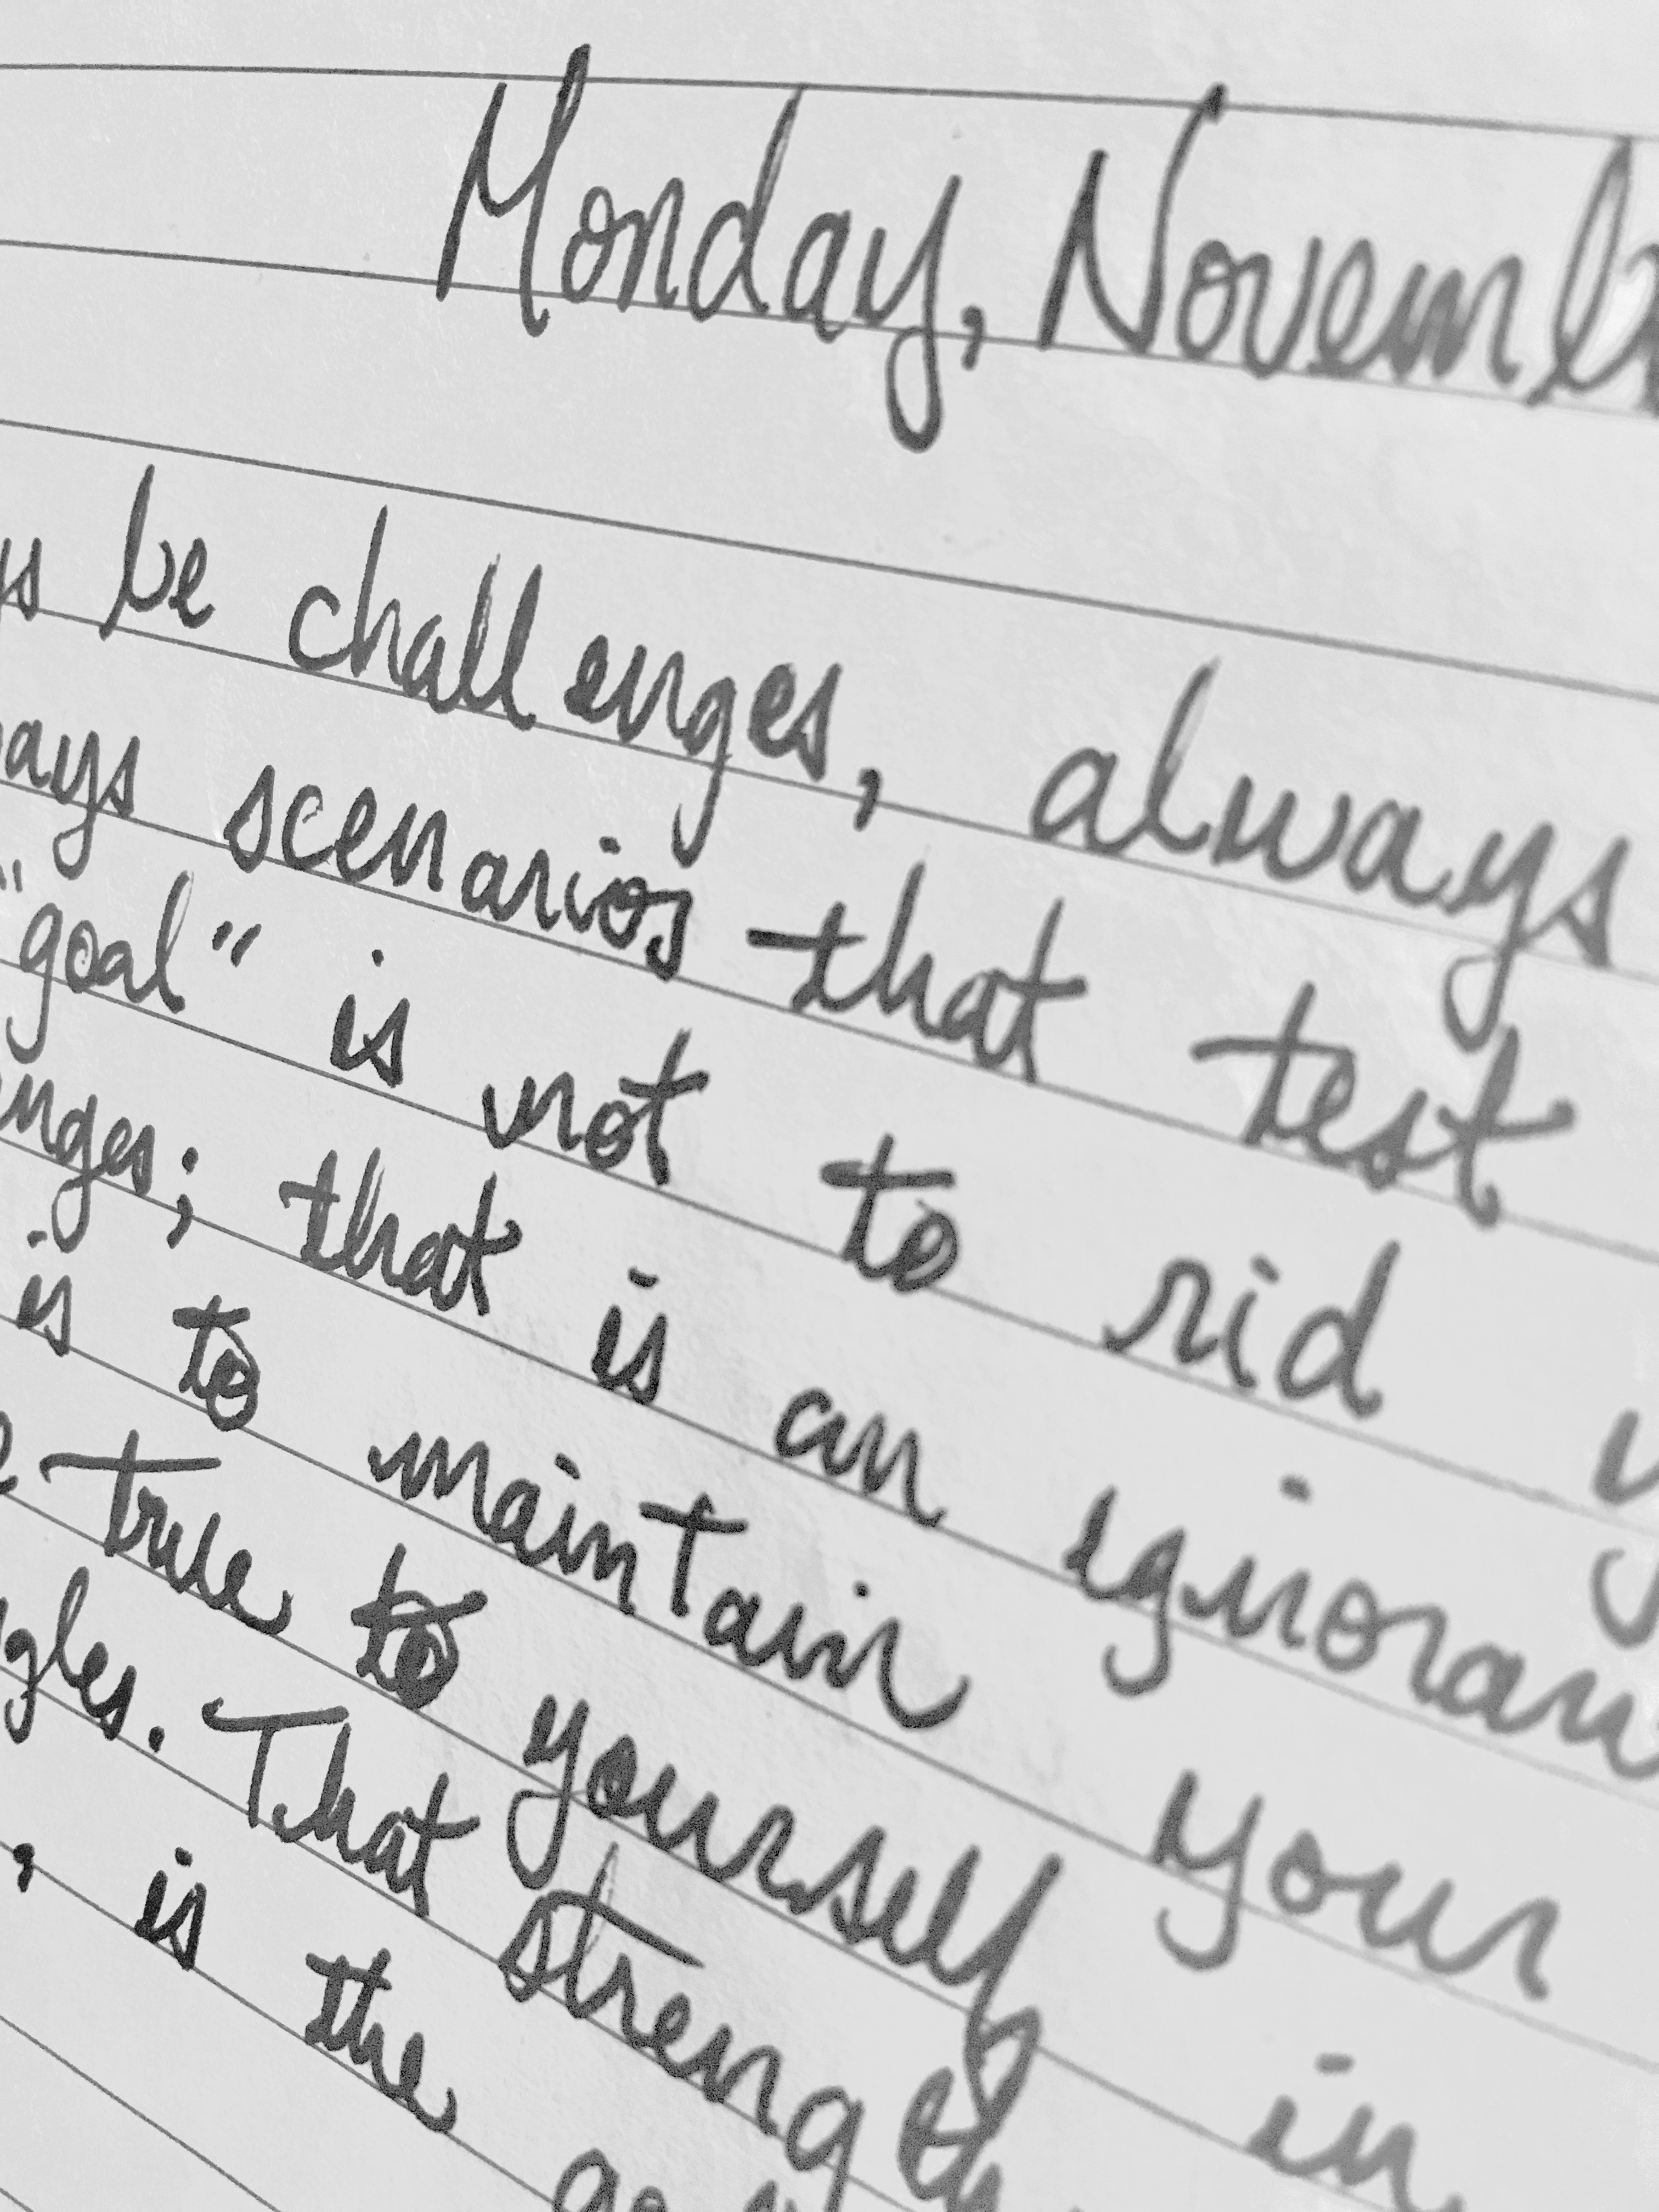 Monday, Novemb
ys be challenges, always
ays scenarios that test
"goal" is not to rid y
enges; that is an ignoran
is to maintain your
e true to yourself in
ggles. That strength
, is the